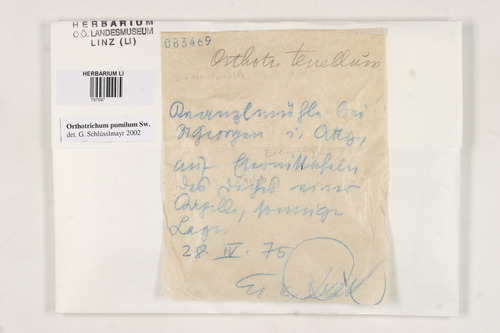 HERBARIUM
O.Ö. LANDESMUSEUM
LINZ (LI)
HERBARIUM LI
797597
Orthotrichum pumilum Sw.
det. G. Schlüsslmayr 2002
083469
Orthotr. tenellum
Kranzlmühle bei
St. Georgen i. Attg.,
auf Eternittafeln
des Daches einer
Kapelle, sonnige
Lage.
28. IV. 75